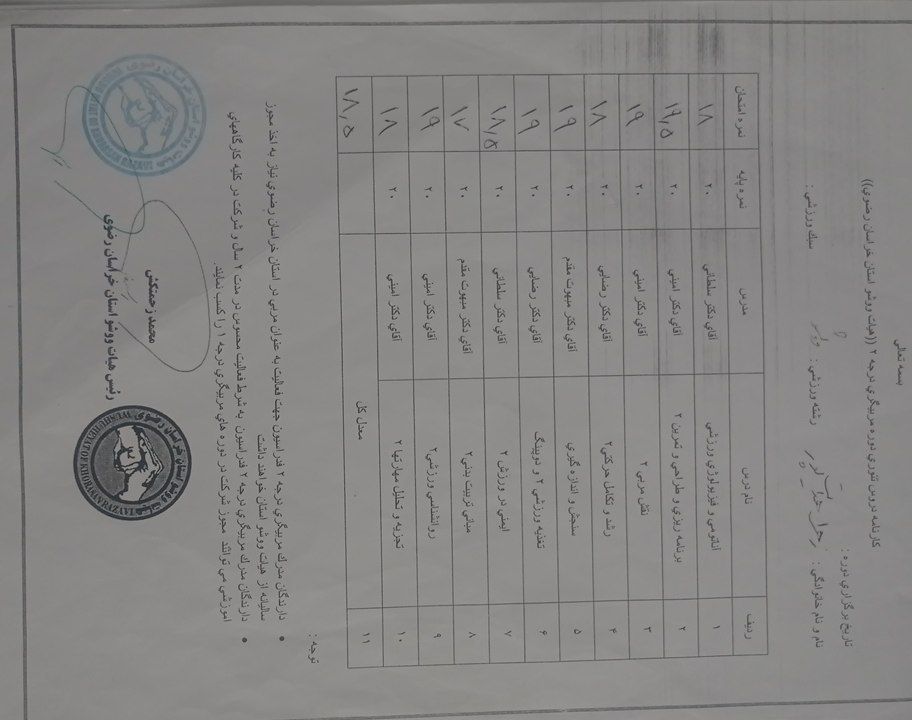 بسمه تعالی
کارنامه دروس تئوری دوره مربیگری درجه ۲ ((هیات ووشو استان خراسان رضوی))
تاریخ برگزاری دوره :
نام و نام خانوادگی : رشته ورزشی : سبک ورزشی :
ردیف نام درس مدرس نمره پایه نمره امتحان
۱ آناتومی و فیزیولوژی ورزشی آقای دکتر سلطانی ۲۰ ۱۸
۲ برنامه ریزی و طراحی و تمرین ۲ آقای دکتر امینی ۲۰ ۱۹,۵
۳ نقش مربی ۲ آقای دکتر امینی ۲۰ ۱۹
۴ رشد و تکامل حرکتی۲ آقای دکتر رضایی ۲۰ ۱۸
۵ سنجش و اندازه گیری آقای دکتر مبهوت مقدم ۲۰ ۱۹
۶ تغذیه ورزشی ۲ و دوپینگ آقای دکتر رضایی ۲۰ ۱۹
۷ ایمنی در ورزش ۲ آقای دکتر سلطانی ۲۰ ۱۸,۵
۸ مبانی تربیت بدنی۲ آقای دکتر مبهوت مقدم ۲۰ ۱۷
۹ روانشناسی ورزشی۲ آقای دکتر امینی ۲۰ ۱۹
۱۰ تجزیه و تحلیل مهارتها ۲ آقای دکتر امینی ۲۰ ۱۸
۱۱ معدل کل ۱۸,۵
توجه :
• دارندگان مدرک مربیگری درجه ۲ فدراسیون جهت فعالیت به عنوان مربی در استان خراسان رضوی نیاز به اخذ مجوز
سالیانه از هیات ووشو استان خواهند داشت
• دارندگان مدرک مربیگری درجه ۲ فدراسیون به شرط فعالیت محسوس در مدت ۲ سال و شرکت در کلیه کارگاههای
آموزشی می توانند مجوز شرکت در دوره های مربیگری درجه ۱ را کسب نمایند.
محمد زحمتکش
رئیس هیات ووشو استان خراسان رضوی
هیات ووشو استان خراسان رضوی
WUSHU HEYAT OF KHORASAN RAZAVI